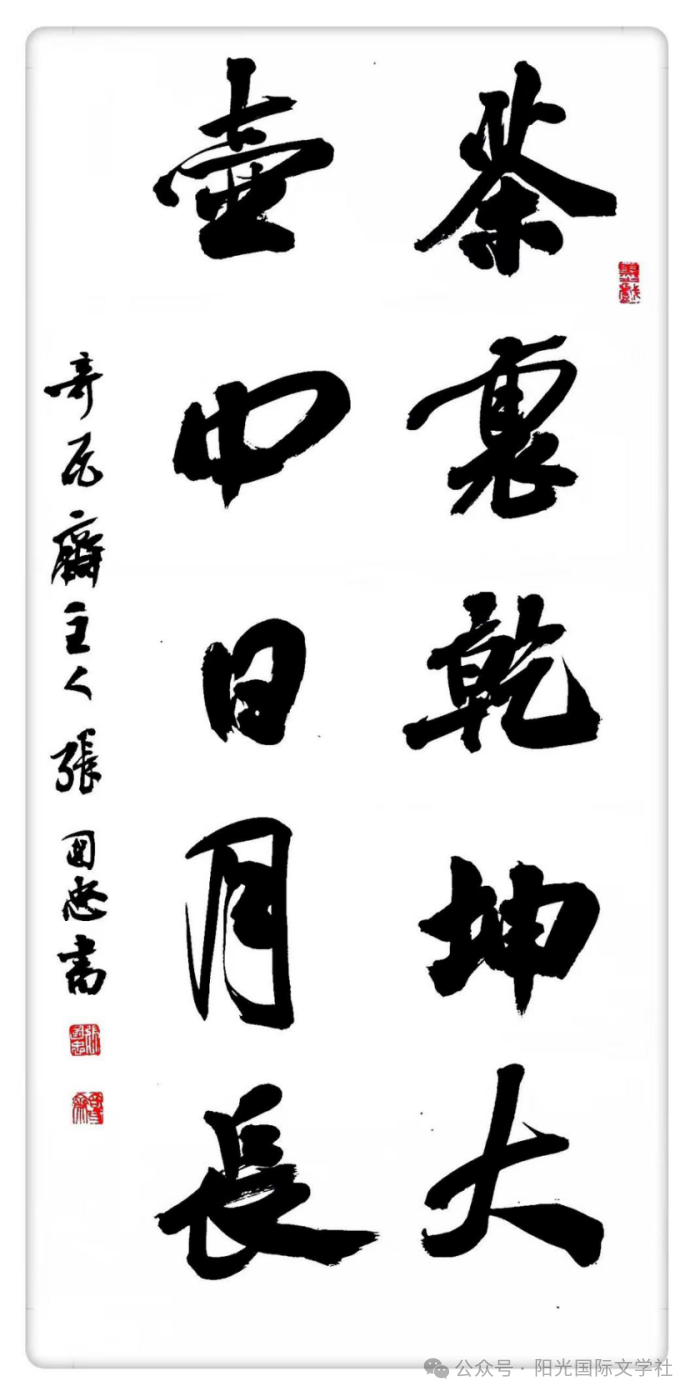 茶裏乾坤大
壺中日月長
瓦齋主人張國忠書
公众号 · 阳光国际文学社